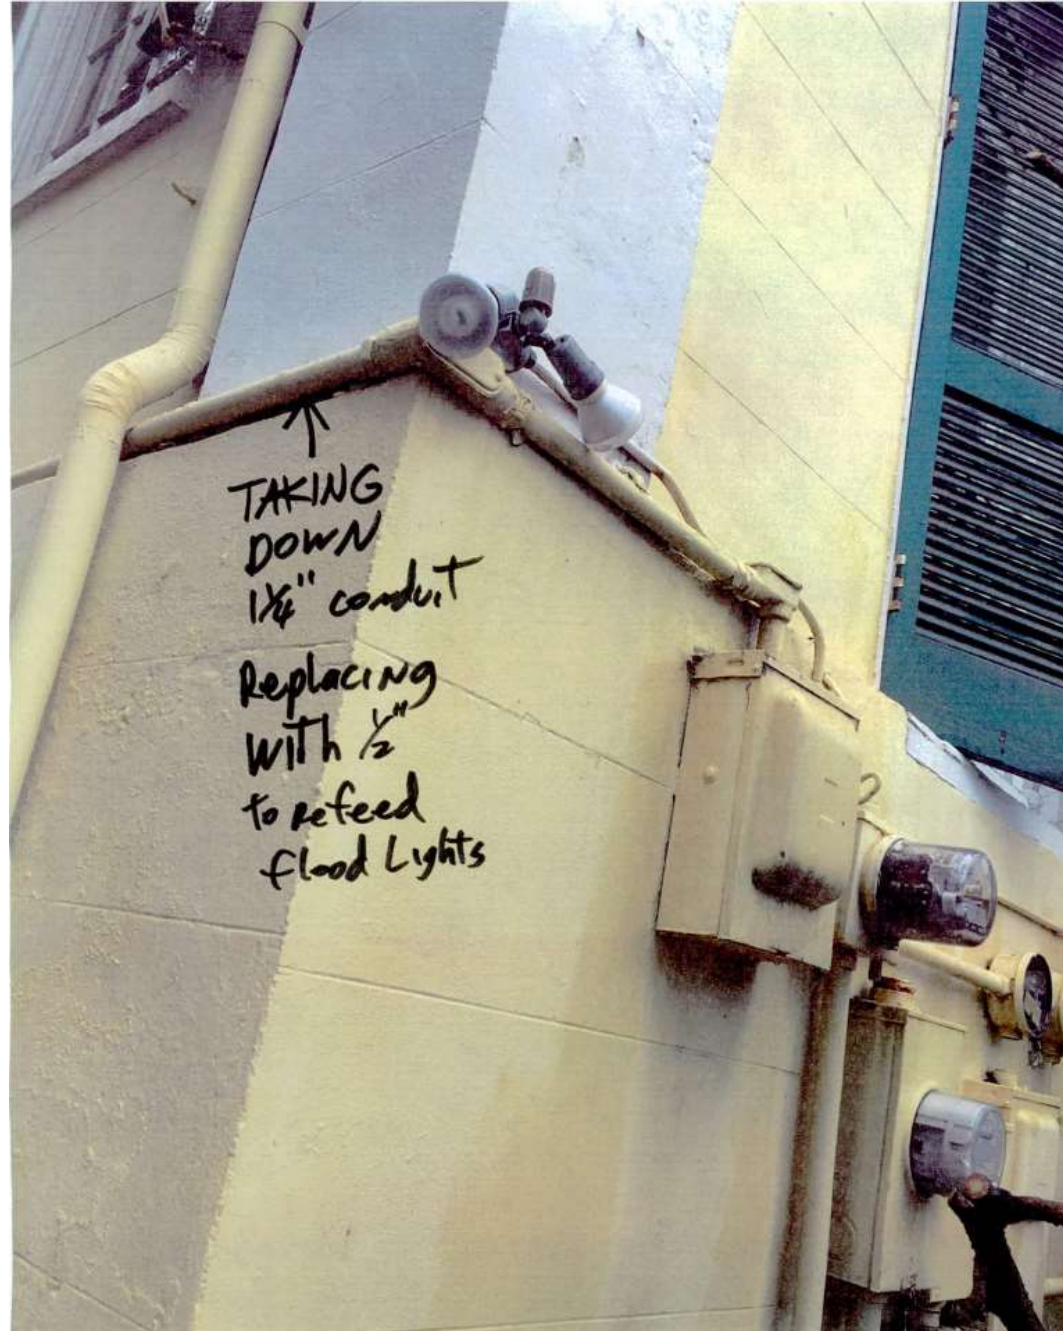 TAKING
DOWN
1¼" conduit
Replacing
with ½"
to refeed
flood Lights